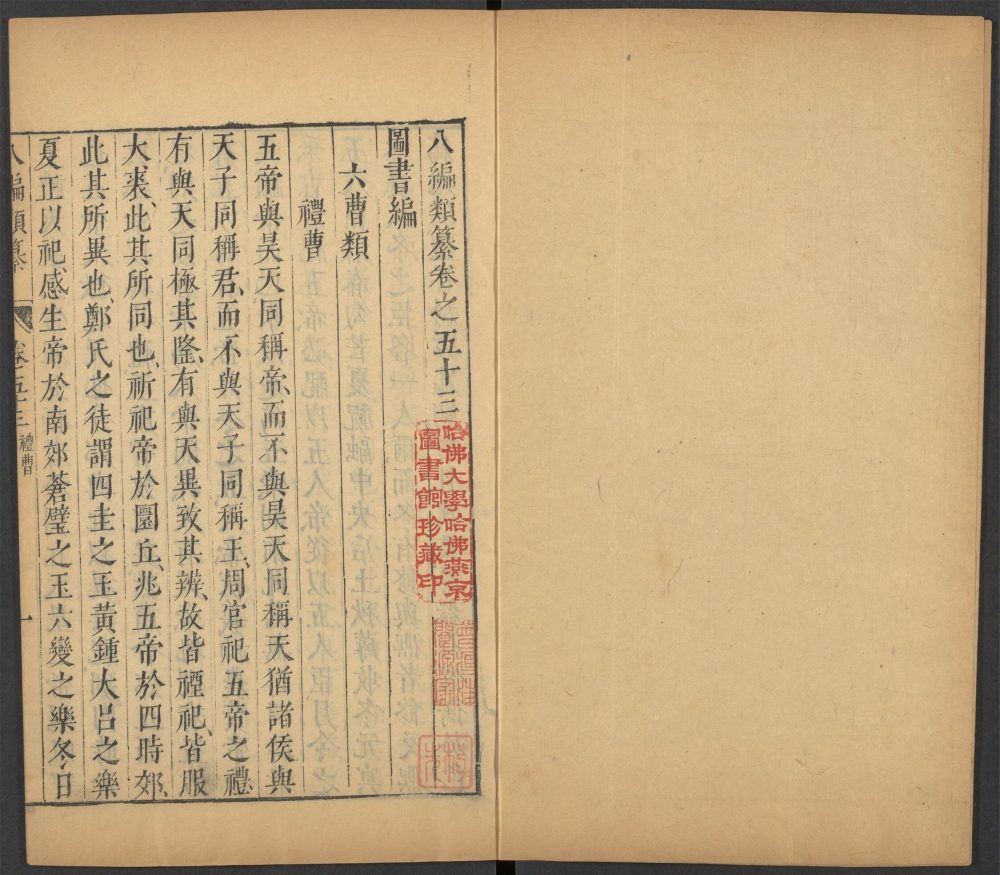 八編類纂卷之五十三
圖書編
六曹類
禮曹
五帝與昊天同稱帝、而不與昊天同稱天猶諸侯與
天子同稱君、而不與天子同稱王、周官祀五帝之禮
有與天同極其隆、有與天異致其辨、故皆禋祀、皆服
大裘、此其所同也、祈祀帝於圜丘、兆五帝於四時郊、
此其所異也、鄭氏之徒謂四圭之玉黃鍾大呂之樂
夏正以祀感生帝於南郊蒼璧之玉六變之樂冬日
八編類纂
卷之五十三
禮曹
一
哈佛大學哈佛燕京
圖書館珍藏印